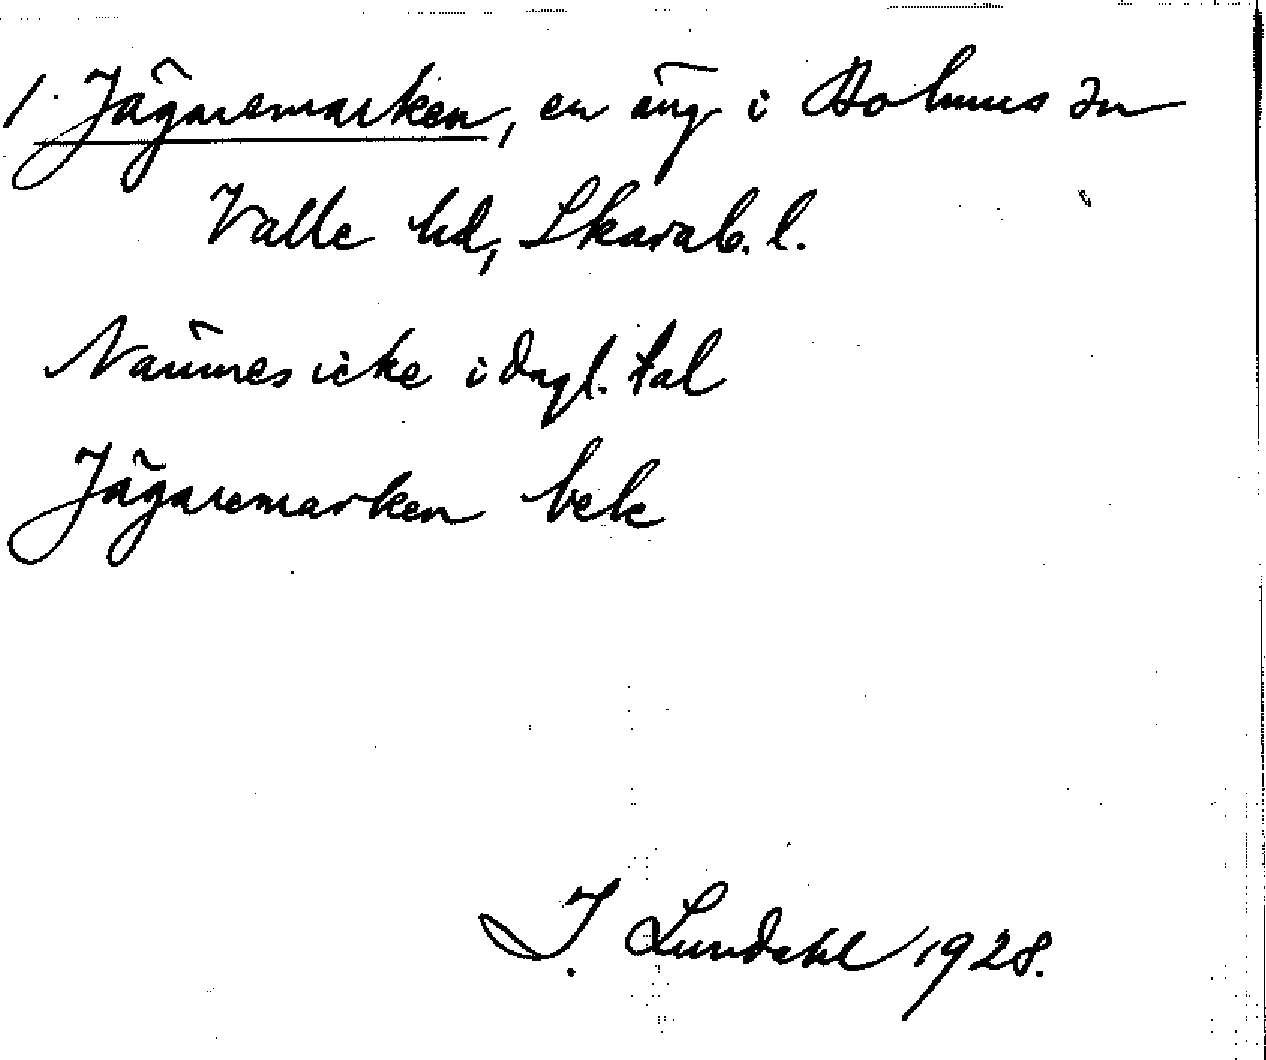 1. Jägaremarken, en äng i Holmes sn
Valle hd, Skarab. l.
Nämnes icke i dagl. tal
Jägaremarken bek
I Lundahl 1928.